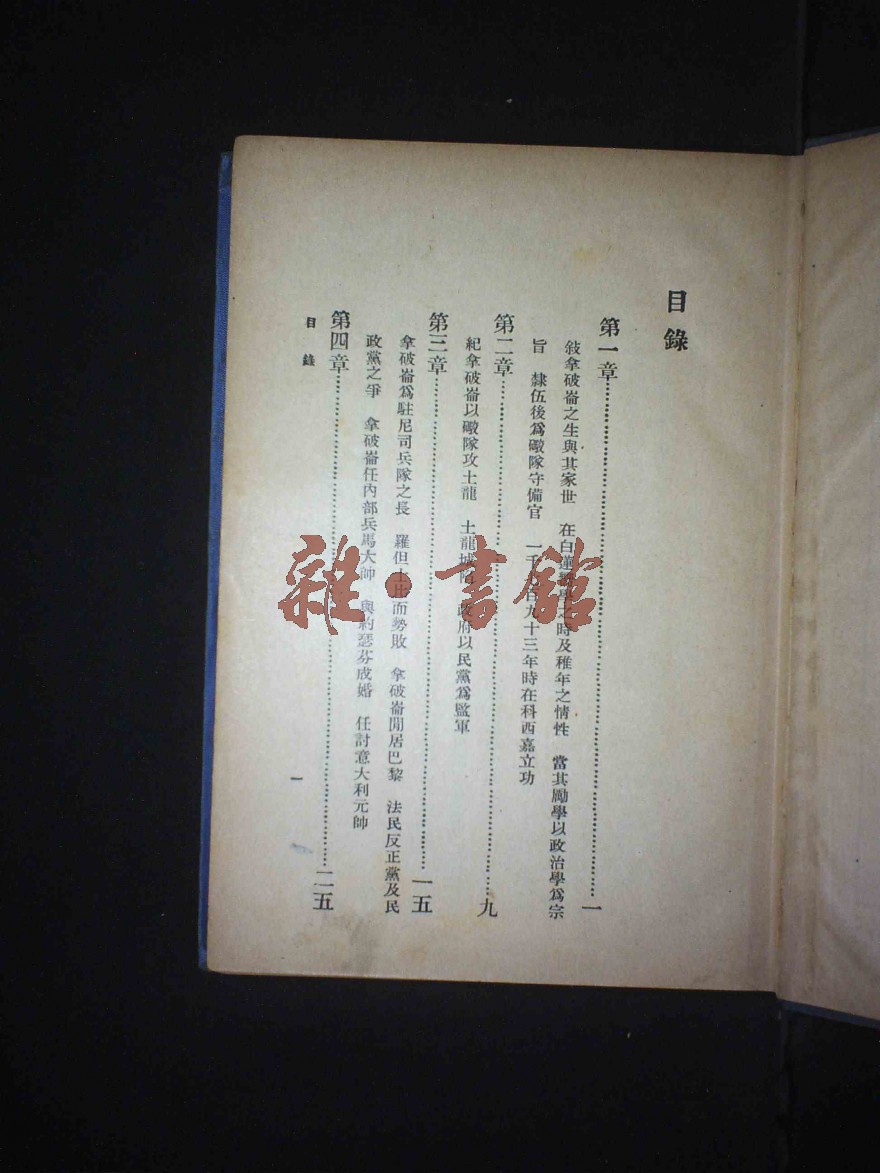 目錄
第一章……一
敍拿破崙之生與其家世　在白達學之時及稚年之情性　當其勵學以政治學爲宗
旨　隸伍後爲礮隊守備官　一千百九十三年時在科西嘉立功
第二章……九
紀拿破崙以礮隊攻土龍　土龍城陷　政府以民黨爲監軍
第三章……一五
拿破崙爲駐尼司兵隊之長　羅但士比而勢敗　拿破崙閒居巴黎　法民反正黨及民
政黨之爭　拿破崙任內部兵馬大帥　與約瑟芬成婚　任討意大利元帥
第四章……二五
目錄
一
雜·書館